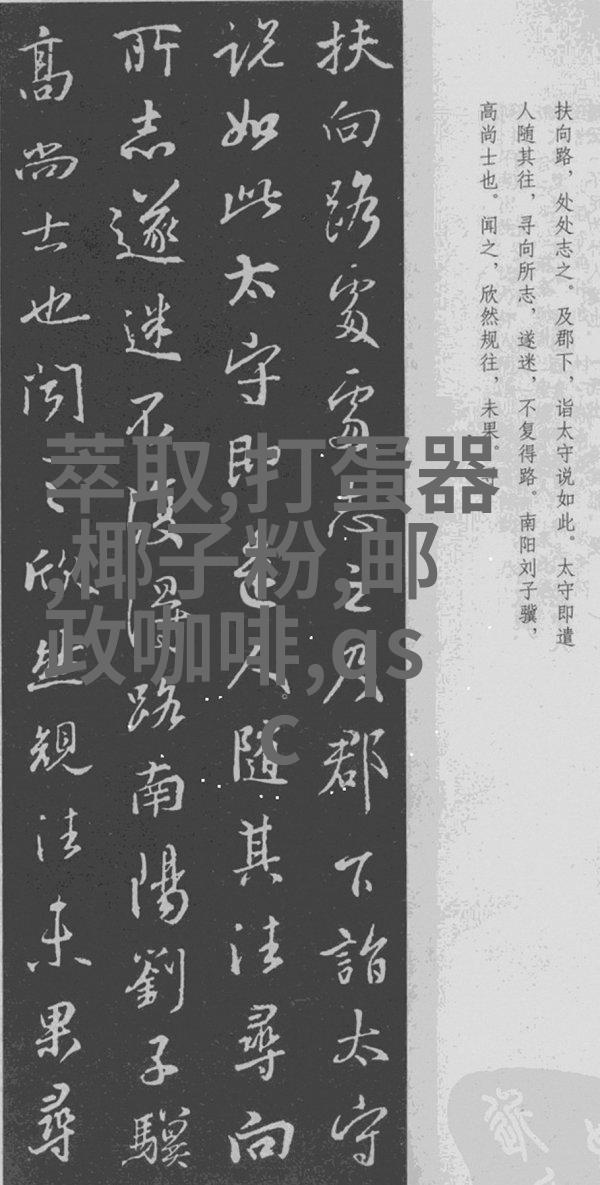 扶向路處處志之及郡下詣太守
说如此太守即遣人隨其往尋向
所志遂迷不復得路南陽劉子驥
高尚士也闻之欣然規往未果尋
扶向路，处处志之。及郡下，诣太守说如此。太守即遣
人随其往，寻向所志，遂迷，不复得路。南阳刘子骥，
高尚士也。闻之，欣然规往，未果。
萃取,打蛋器
,椰子粉,邮
政咖啡,qs
c